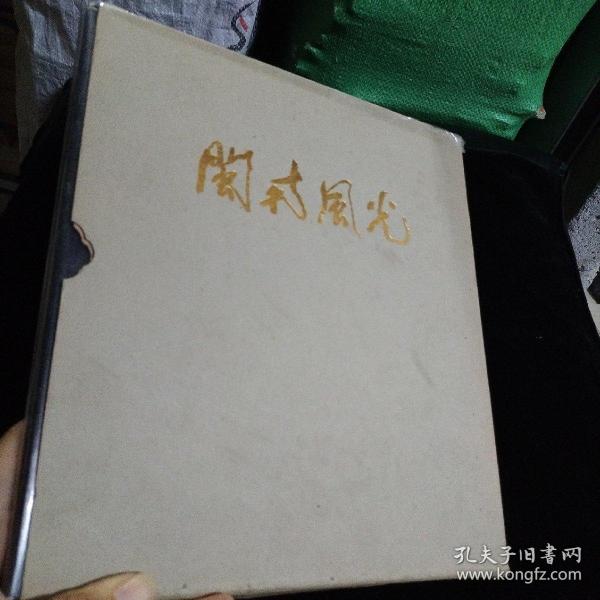 閩風光
孔夫子旧書网
www.kongfz.com